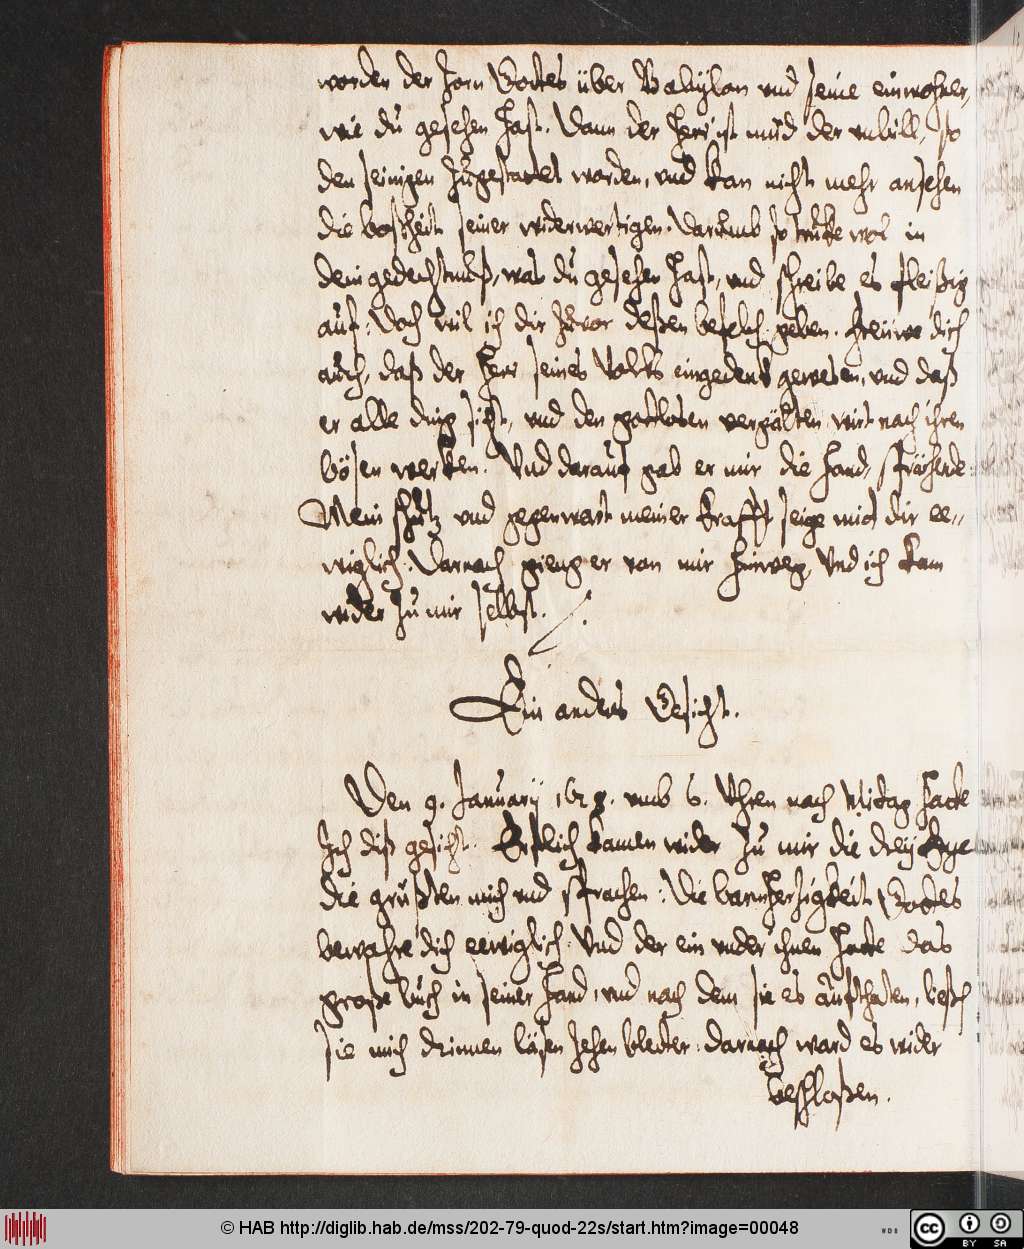 worden der Zorn Gottes über Babylon und seine einwohner,
wie du gesehen hast. Dann der Herr ist müd der unbill, so
den seinigen zugestattet worden, und kan nicht mehr ansehen
die boßheit seiner widerwertigen. Darumb so trucke wol in
dein gedechtnuß, was du gesehen hast, und schreibe es fleißig
auf: Doch wil ich dir zuvor deßen befelch geben. Freüwe dich
auch, daß der Herr seines Volks eingedenk gewesen, und daß
er alle ding sicht, und den gottlosen vergälten wirt nach ihren
bösen werken. Und darauf gab er mir die Hand, sprächende:
Mein schutz und gegenwart meiner Krafft seige mit dir ee-
wiglich: Darnach gieng er von mir hinweg, Und ich kam
wider zu mir selbst.
Ein anders Gesicht.
Den 9. Januarij 1628. umb 6. Uhren nach Mittag hatte
Ich diß gesicht. Erstlich kamen wider zu mir die dreij
die grüßten mich und sprachen: Die barmherzigkeit Gottes
bewahre dich eewiglich: Und der ein under ihnen hatte das
große buch in seiner Hand, und nach dem sie es aufthaten, ließen
sie mich drinnen läsen zehen bletter: darnach ward es wider
beschloßen.
© HAB http://diglib.hab.de/mss/202-79-quod-22s/start.htm?image=00048
WDB
CC BY SA